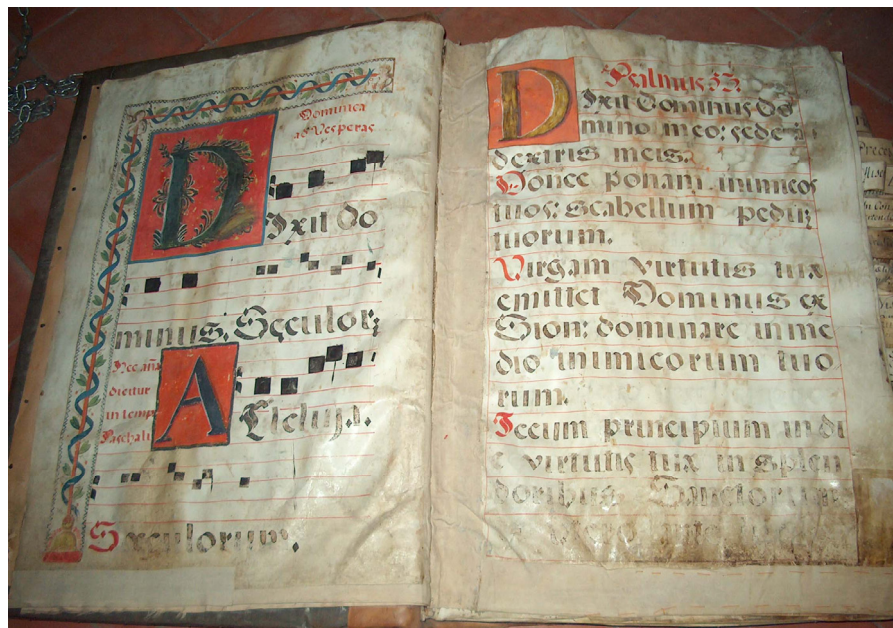 Dominica
ad Vesperas
Dixit Do
minus. Sęculor
Hec aña
dicitur
in temp
Paschali
Alleluya.
Sęculorum.
Psalmus
Dixit Dominus Do
mino meo: sede a
dextris meis.
Donec ponam inimicos
tuos: scabellum pedũ
tuorum.
Virgam virtutis tuæ
emittet Dominus ex
Sion: dominare in me
dio inimicorum tuo
rum.
Tecum principium in di
e virtutis tuæ in splen
doribus Sanctorum